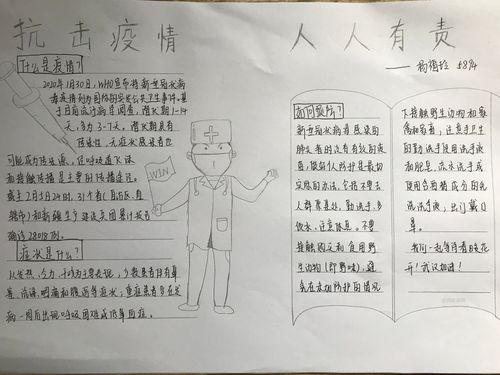 抗击疫情 人人有责
什么是疫情?
2020年1月30日,WHO宣布将新型冠状病
毒疫情列为国际的突发公共卫生事件。基
于目前流行病学调查,潜伏期1-14
天,多为3-7天。潜伏期具有
传染性,无症状感染者也
可能成为传染源,经呼吸道飞沫
和接触传播是主要的传播途径。
截至2月5日24时,31个省(自治区、直
辖市)和新疆生产建设兵团累计报告
确诊28018例。
症状是什么?
以发热、乏力、干咳为主要表现,少数患者伴有鼻
塞、流涕、咽痛和腹泻等症状;重症患者多在发
病一周后出现呼吸困难或低氧血症。
WIN
如何预防?
新型冠状病毒感染的
肺炎暂时没有有效的疫
苗,做好个人防护是最切
实际的办法,包括不要去
人群聚集处,勤洗手,多
饮水,注意休息。不要
接触购买和食用野
生动物(即野味),避
免在未加防护的情况
下接触野生动物和家
禽和家畜,注意手卫生
的勤洗手使用洗手液
和肥皂,流水洗手或
使用含酒精成分的免
洗洗手液,出门戴口
罩。
我们一起等待春暖花
开!武汉加油!